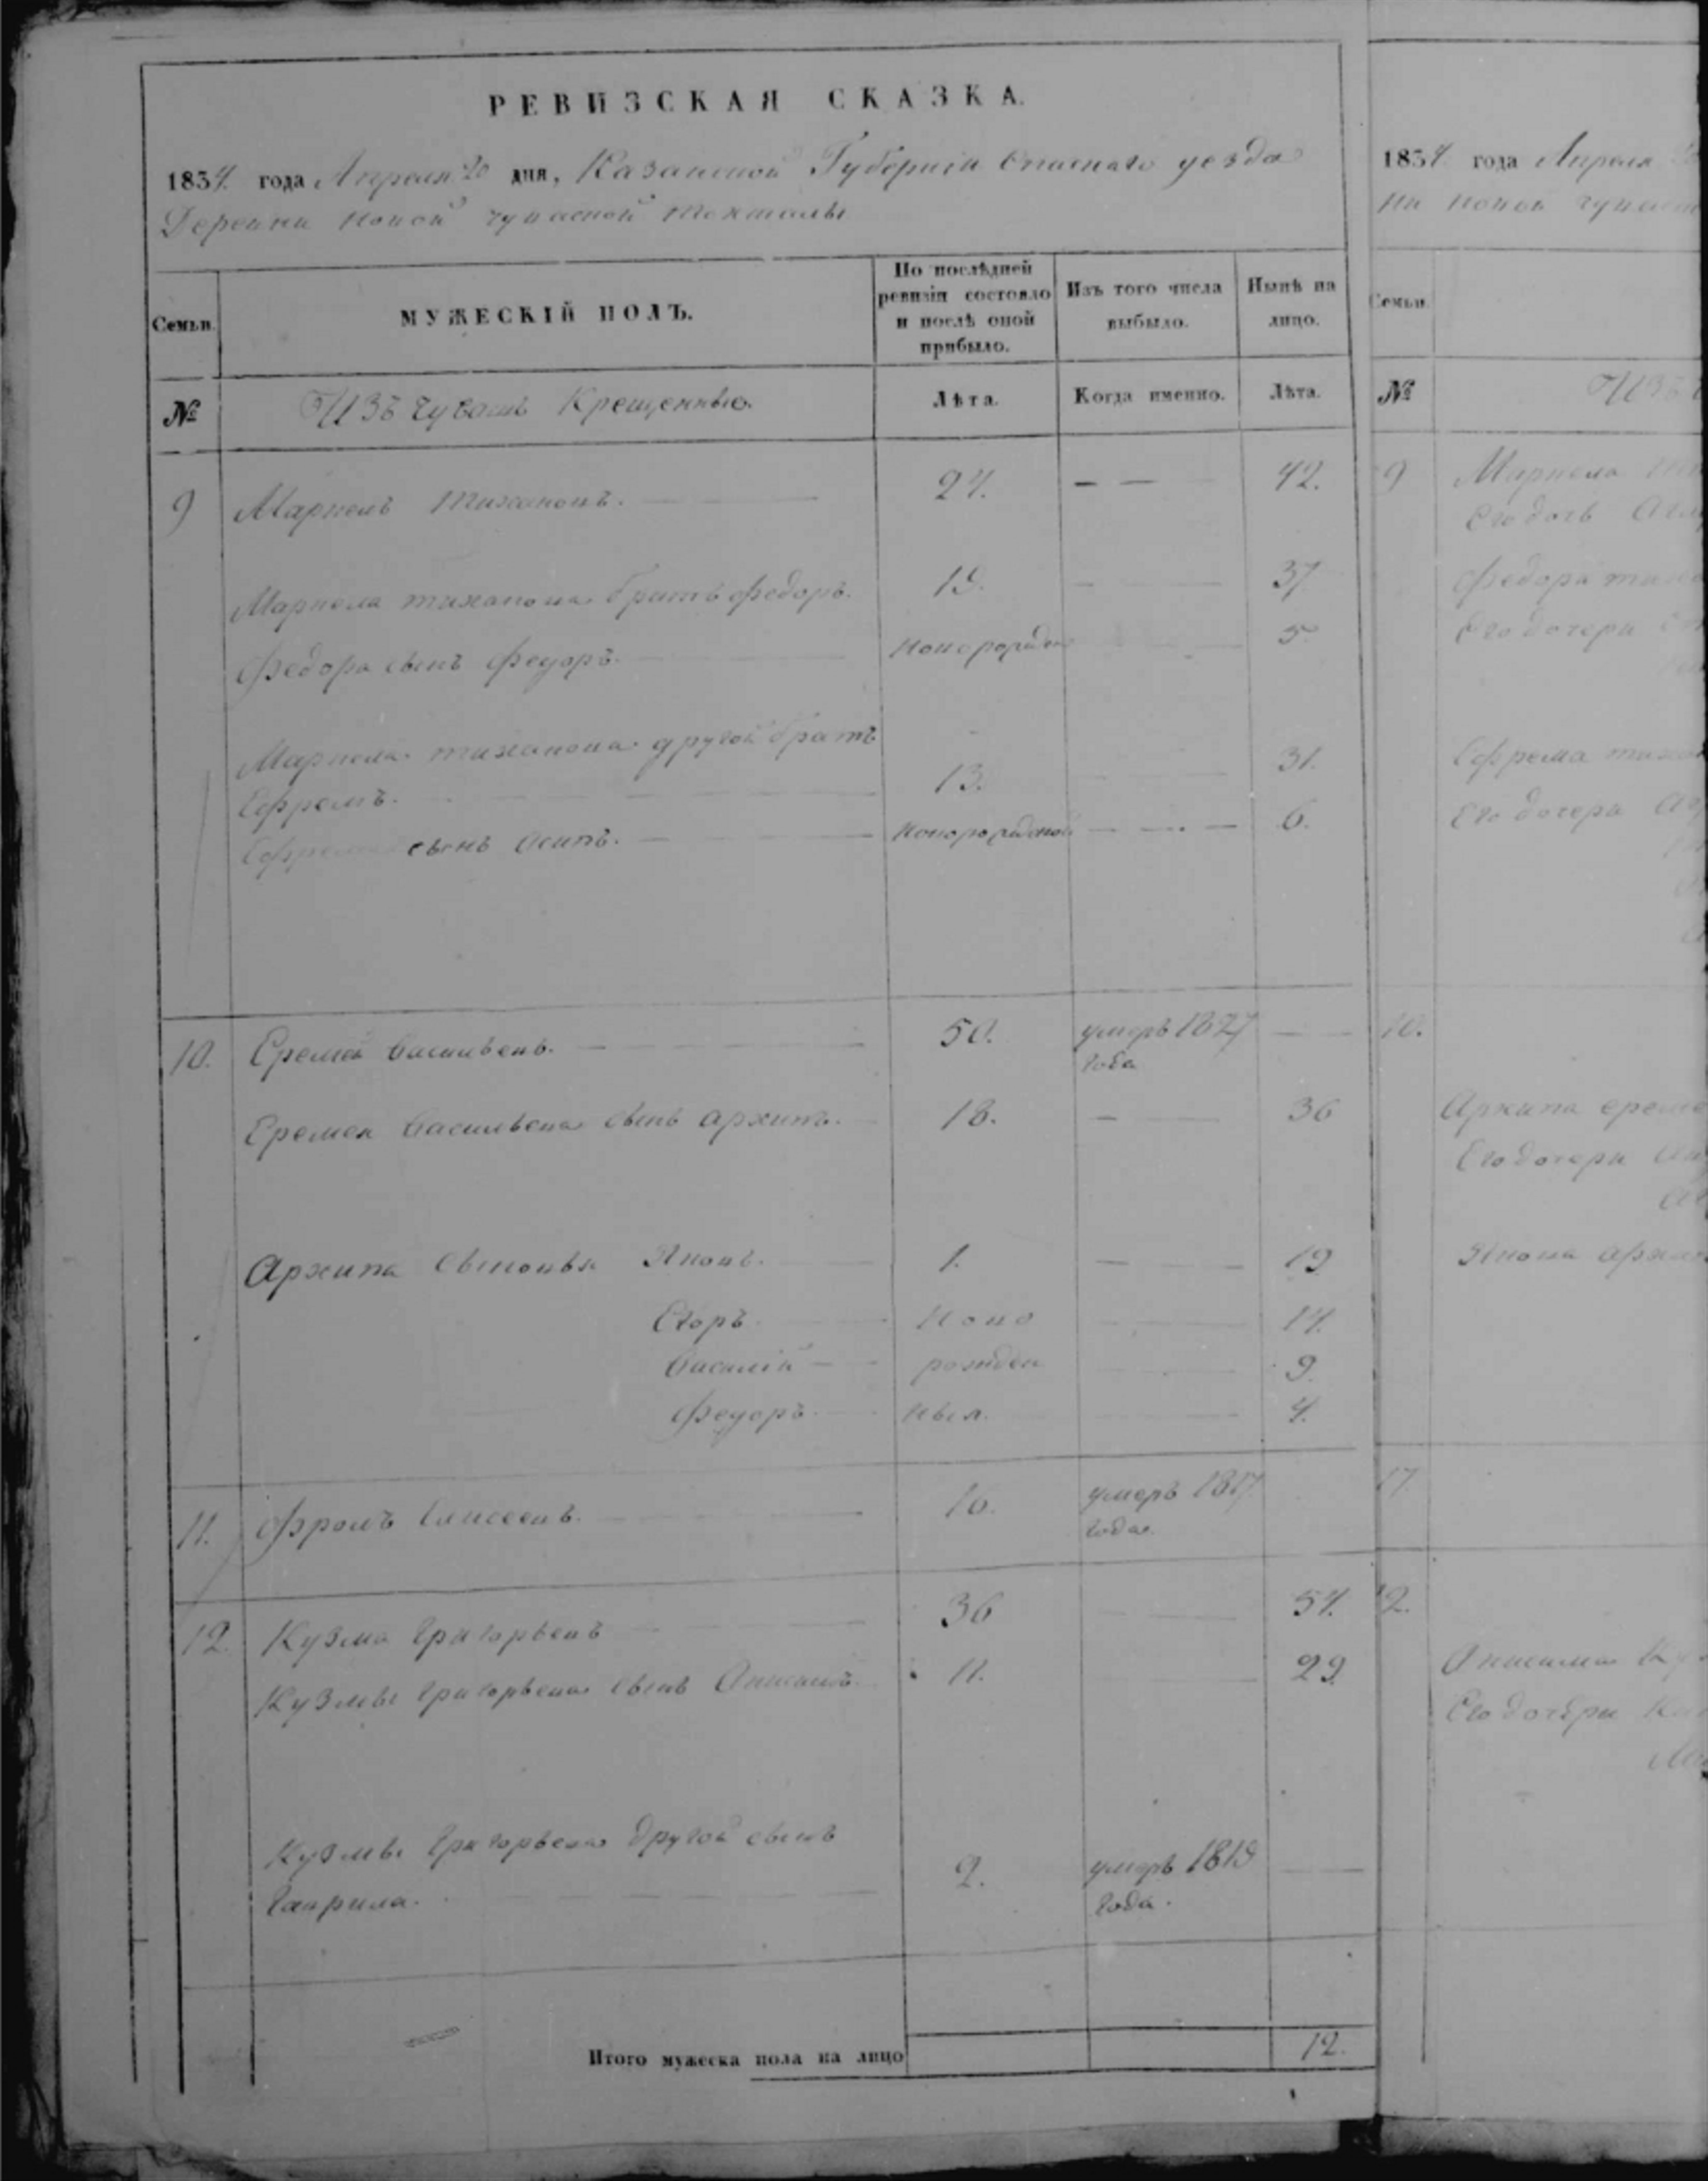 РЕВИЗСКАЯ СКАЗКА.
1834. года Апреля 20 дня, Казанской Губерніи Спаскаго уезда
Деревни Новой чуваской
Семьи. МУЖЕСКІЙ ПОЛЪ. По послѣдней ревизіи состояло и послѣ оной прибыло. Изъ того числа выбыло. Нынѣ на лицо.
№ Изъ чувашъ Крещенные. Лѣта. Когда именно. Лѣта.
9 Маркелъ тихановъ. 24. 42.
Маркела тиханова братъ федоръ. 19. 37.
Федора сынъ федоръ. новорожден 5
Маркела тиханова другой братъ
Ефремъ. 13. 31.
Ефрема сынъ Осипъ. новорожденой 6.
10. Еремей Васильевъ. 50. умеръ 1827 года
Еремея Васильева сынъ архипъ. 18. 36
Архипа сыновья Яковъ. 1. 19
Егоръ. ново 14.
Василій рожден 9.
Федоръ. ныя. 4.
11. Фролъ Елисеевъ. 16. умеръ 1817 года.
12. Кузма григорьевъ 36 54.
Кузмы григорьева сынъ Анисимъ. 11. 29.
Кузмы Григорьева другой сынъ
Гаврила. 2. умеръ 1819 года.
Итого мужеска пола на лицо 12.
1834 года Апреля
ни новой
Семьи.
№ Изъ
9 Маркела
Его дочь
Федора
Его дочери
Ефрема
Его дочери
10.
Архипа
Его дочери
Якова
11
12.
Анисима
Его дочери